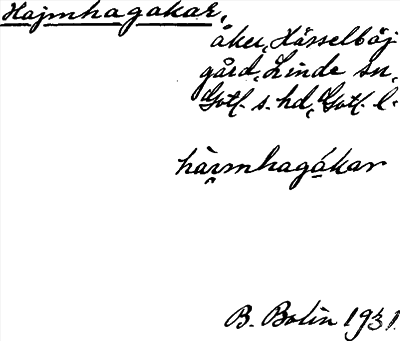 Hajmhagakar,
åker, Hässelböj
gård, Linde sn,
Gotl. s. hd, Gotl. l.
hàı̯mhagákar
B. Bolin 1931.